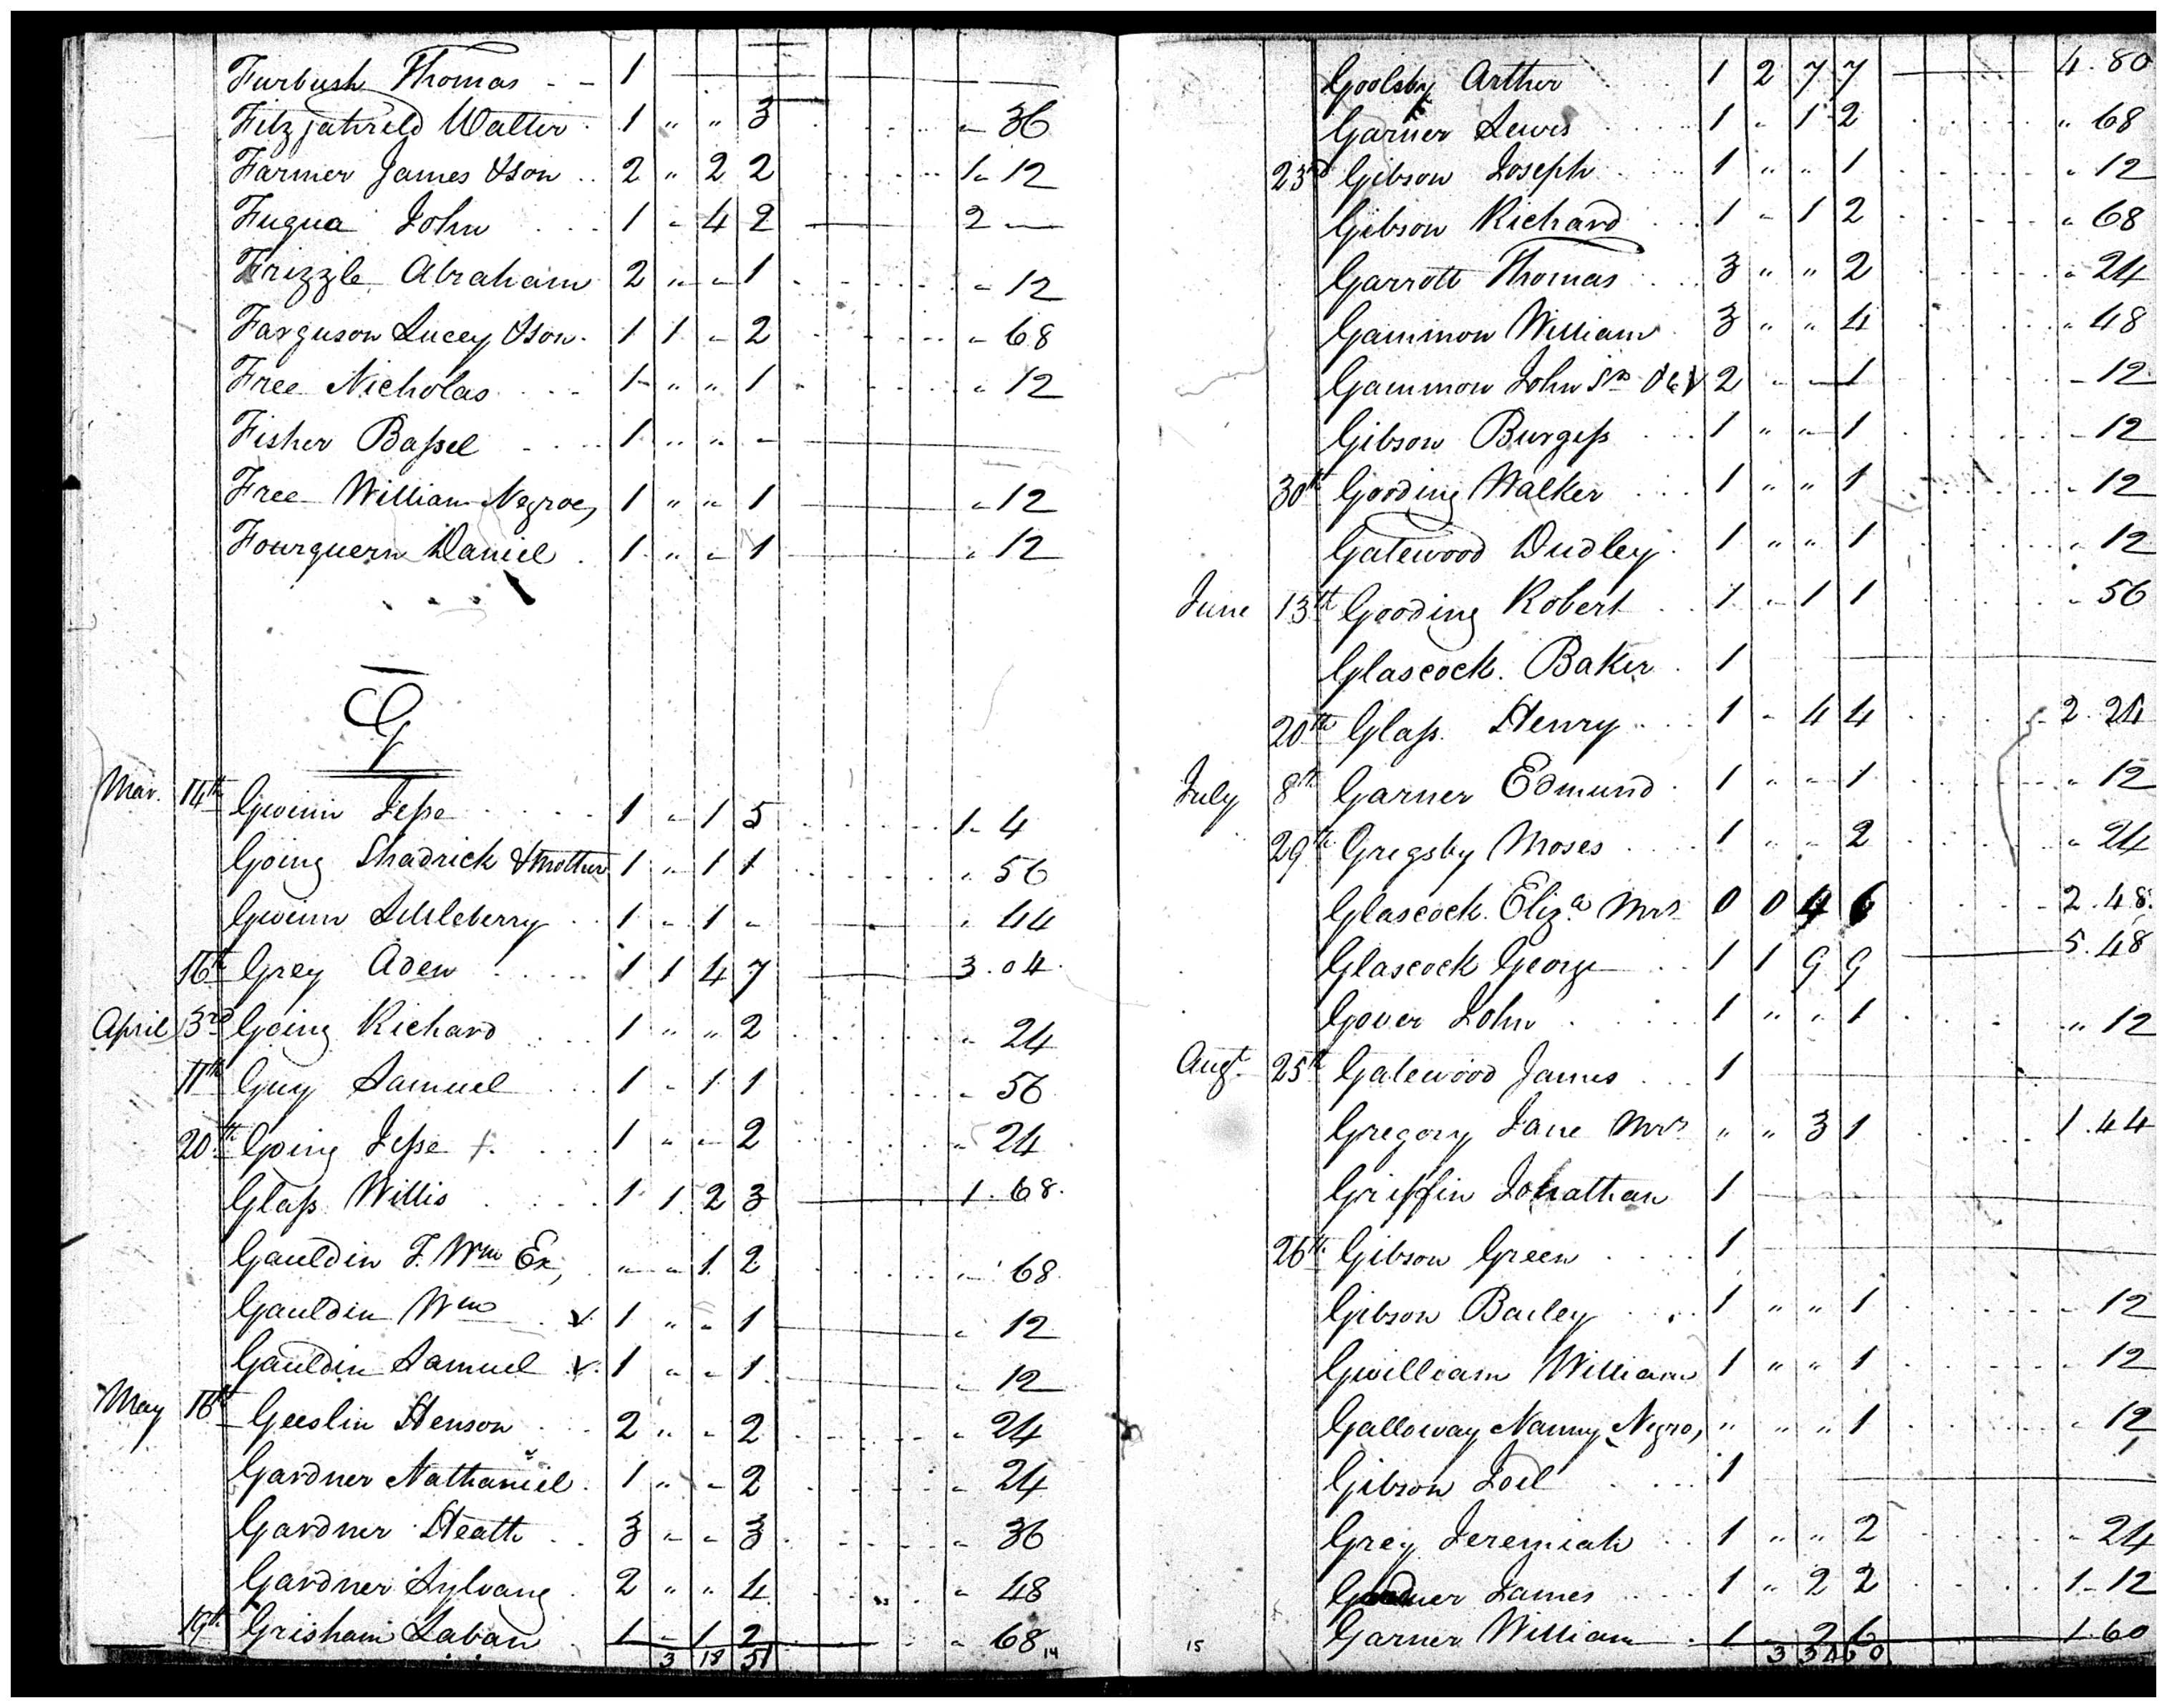 Furbush Thomas - - 1
Fitzjahreld Walter 1 " " 3 " 36
Farmer James & son 2 " 2 2 1 - 12
Fuqua John 1 - 4 2 2 —
Frizzle Abraham 2 " - 1 - 12
Farguson Lucey & son 1 1 - 2 - 68
Free Nicholas 1 " " 1 " 12
Fisher Baſsel 1 " " -
Free William Negroe, 1 " " 1 " 12
Fourquern Daniel 1 " - 1 " 12
G
Mar. 14th Gwinn Jeſse 1 - 1 5 1 - 4
Going Shadrick & mother 1 " 1 1 " 56
Gwinn Littleberry 1 - 1 - " 44
16th Grey Aden 1 1 4 7 3.04
April 3rd Going Richard 1 " " 2 " 24
11th Guy Samuel 1 - 1 1 - 56
20th Going Jeſse 1 " - 2 " 24
Glaſs Willis 1 1 2 3 1.68
Gauldin J. Wm Ex, " - 1 2 - 68
Gauldin Wm v 1 " - 1 " 12
Gauldin Samuel v 1 " - 1 - 12
May 16th Geeslin Henson 2 " - 2 - 24
Gardner Nathaniel 1 " - 2 - 24
Gardner Heath 3 - - 3 - 36
Gardner Sylvang 2 " " 4 " 48
19th Grisham Laban 1 - 1 2 - 68
3 18 51
14
Goolsby Arthur 1 2 7 7 4.80
Garner Lewis 1 - 1 2 " 68
23rd Gibson Joseph 1 " " 1 " 12
Gibson Richard 1 - 1 2 " 68
Garrott Thomas 3 " " 2 " 24
Gammon William 3 " " 4 " 48
Gammon John Sr 2 - - 1 - 12
Gibson Burgeſs 1 " " 1 - 12
30th Gooding Walker 1 " " 1 - 12
Gatewood Dudley 1 " " 1 " 12
June 13th Gooding Robert 1 - 1 1 - 56
Glascock. Baker 1
20th Glaſs. Henry 1 - 4 4 2.24
July 8th Garner Edmund 1 " - 1 " 12
29th Grigsby Moses 1 " " 2 " 24
Glascock. Eliza Mrs 0 0 4 6 2.48
Glascock George 1 1 9 9 5.48
Gover John 1 " " 1 " 12
Augt 25th Gatewood James 1
Gregory Jane Mrs " " 3 1 1.44
Griffin Jonathan 1
26th Gibson Green 1
Gibson Bailey 1 " " 1 - 12
Gwilliam William 1 " " 1 " 12
Galloway Nanny Negro, " " " 1 " 12
Gibson Joel 1
Grey Jeremiah 1 " " 2 " 24
James 1 " 2 2 1 - 12
Garner William 1 - 2 6 1.60
3 60
15